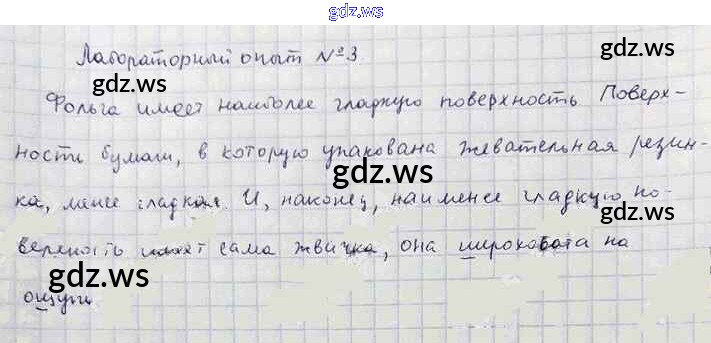 gdz.ws
gdz.ws
Лабораторный опыт №3
gdz.ws
gdz.ws
Фольга имеет наиболее гладкую поверхность Поверх-
ности бумаги, в которую упакована жевательная резин-
gdz.ws
ка, менее гладкая. И, наконец, наименее гладкую по-
верхность имеет сама жвачка, она шероховата на
gdz.ws
gdz.ws
ощупь